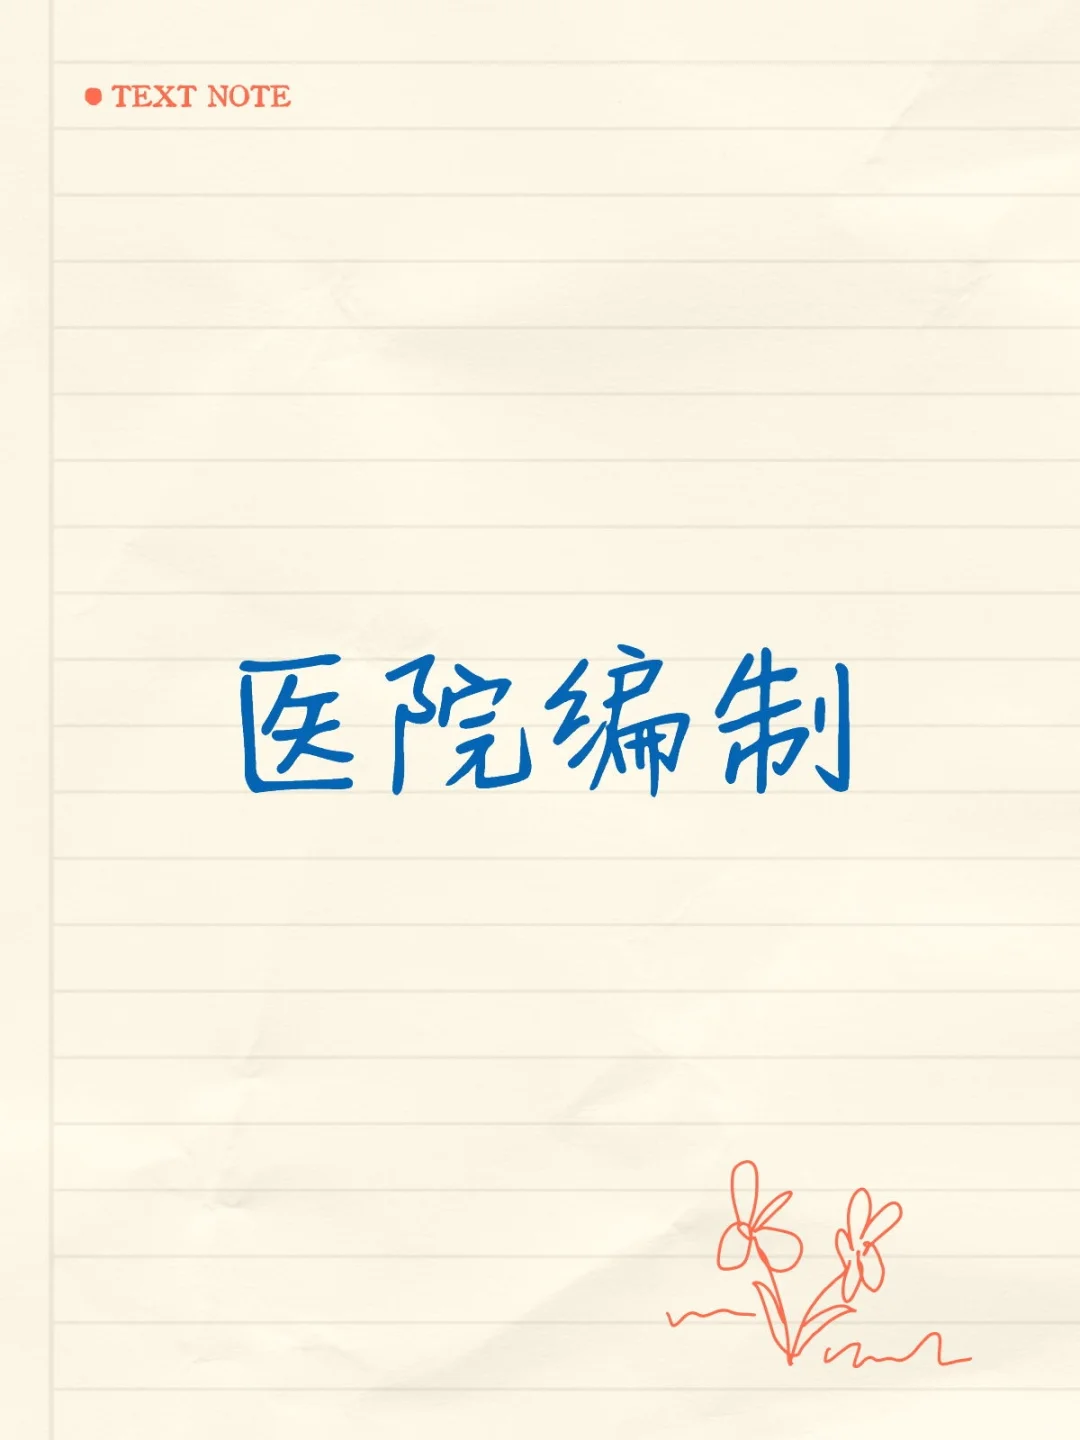 TEXT NOTE
医院编制